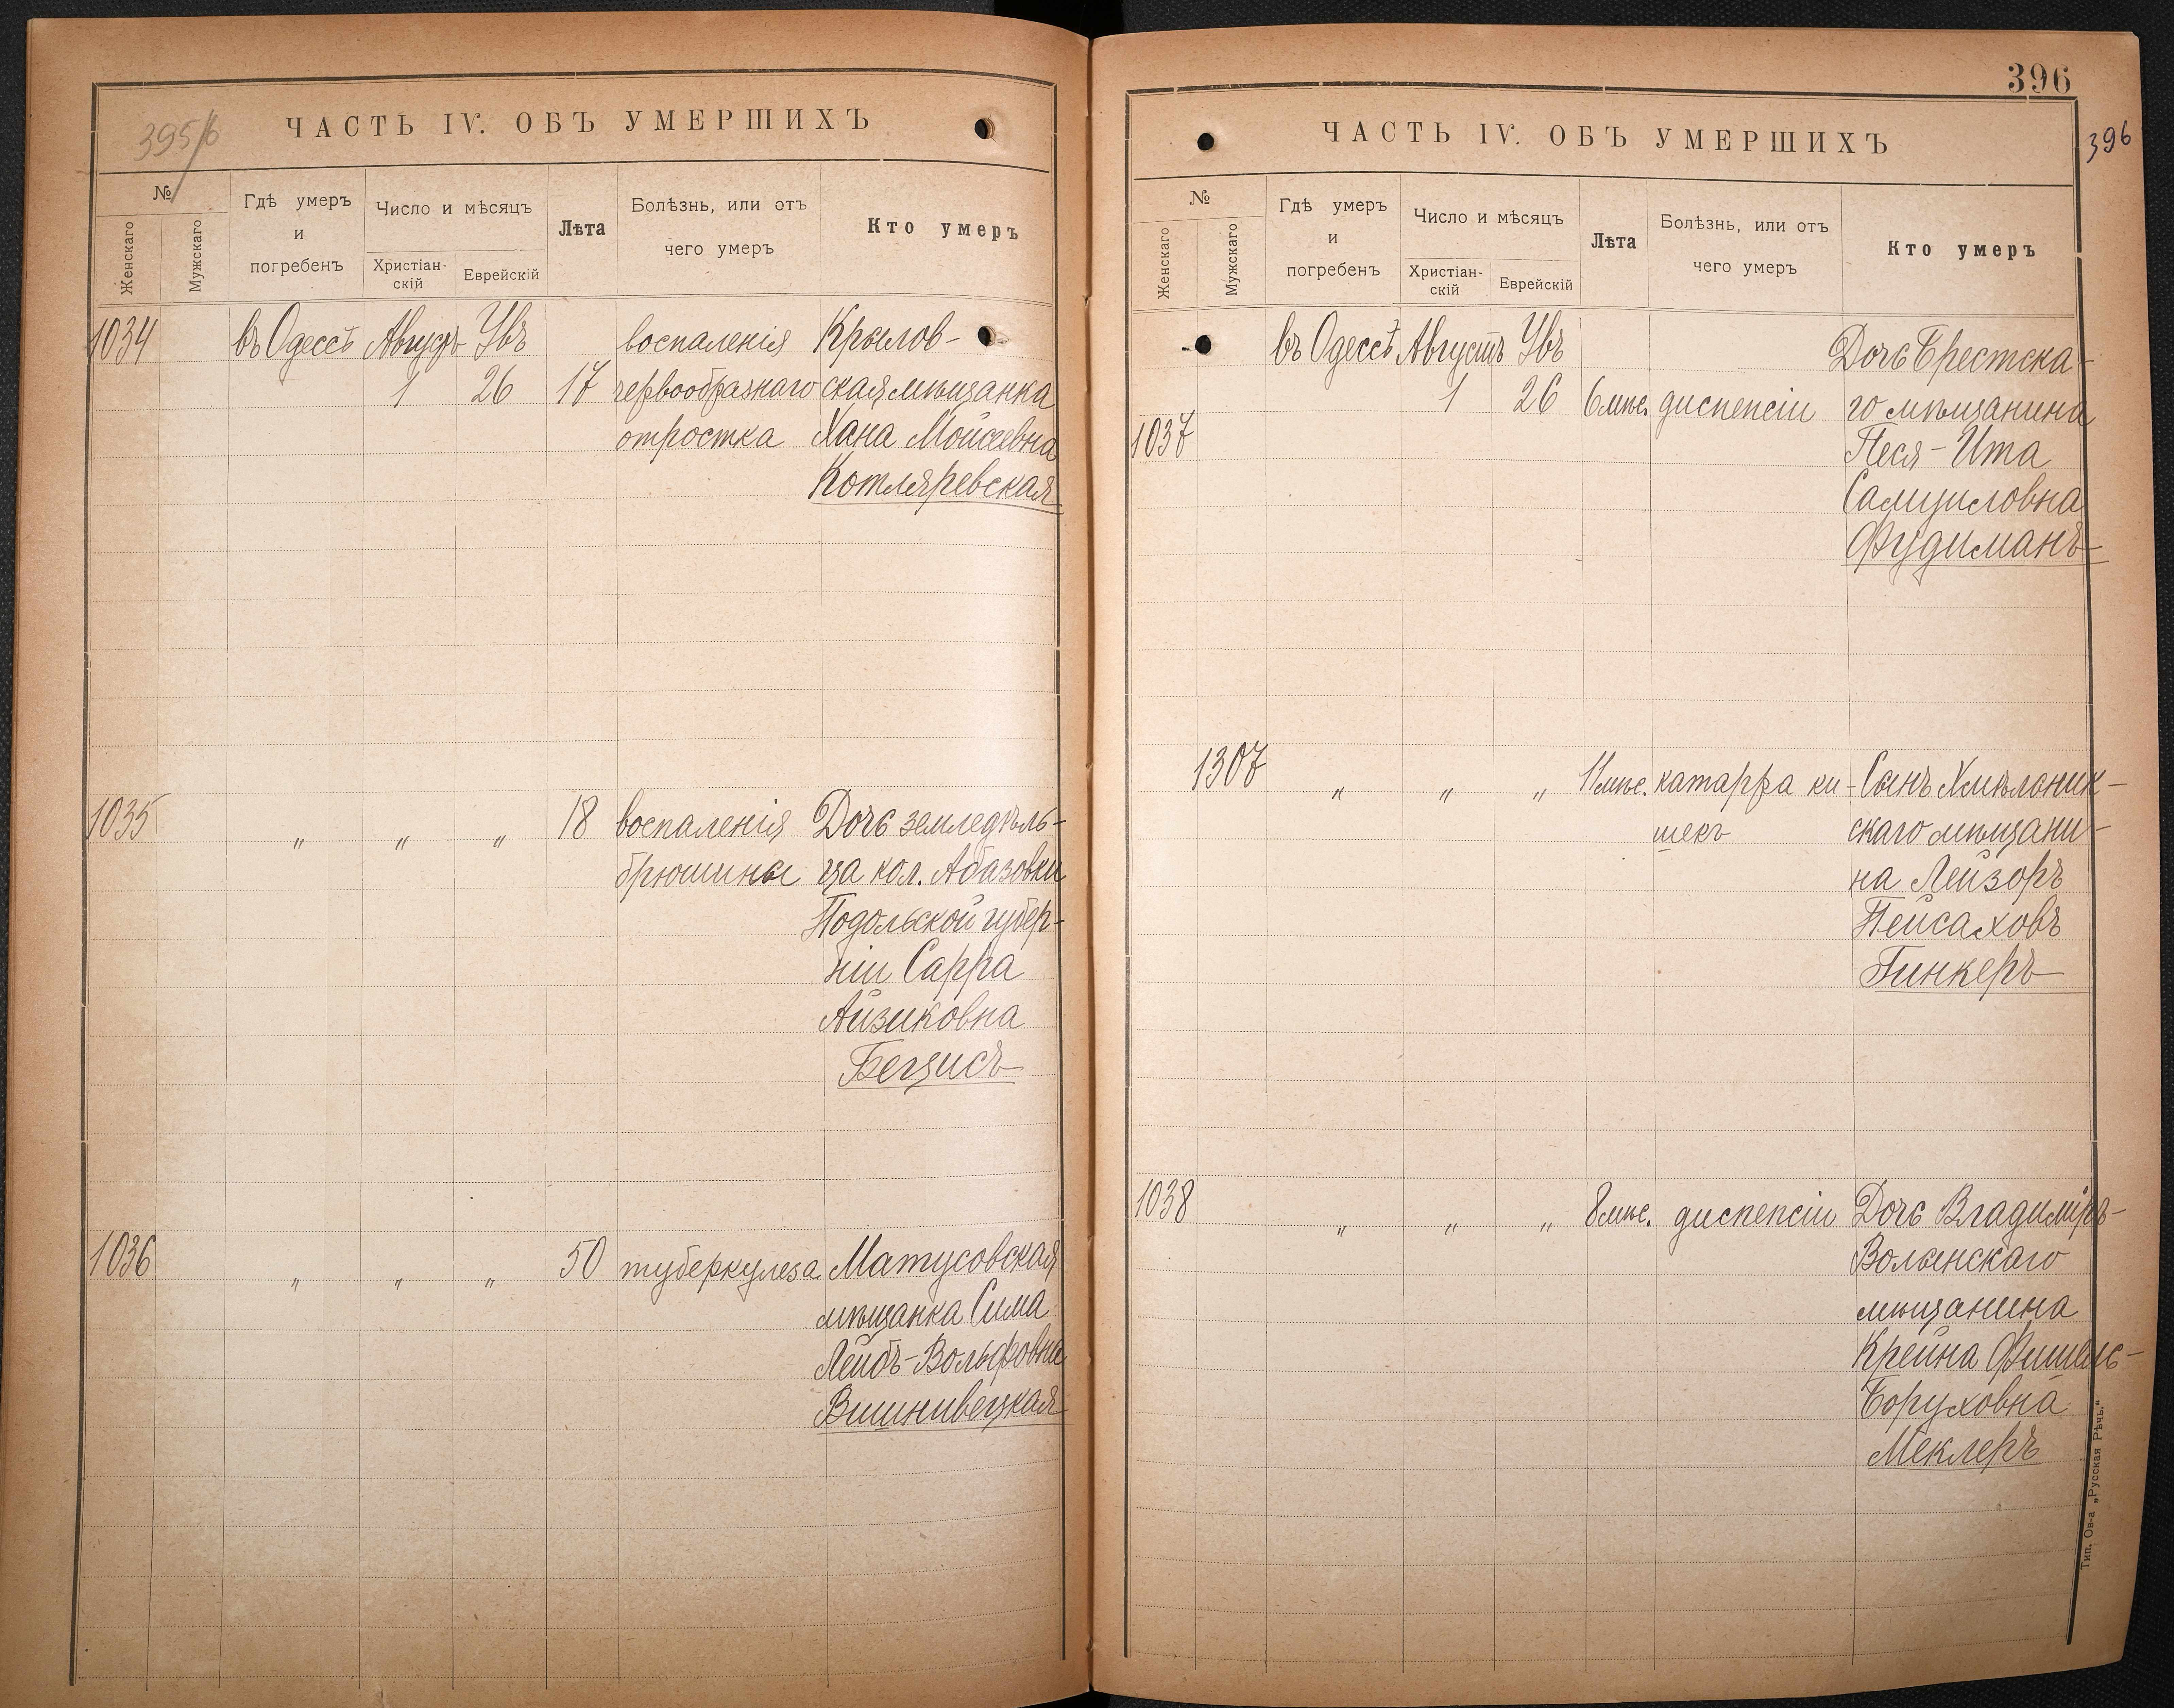 395/6
ЧАСТЬ IV. ОБЪ УМЕРШИХЪ
№
Женскаго
Мужскаго
Гдѣ умеръ
и
погребенъ
Число и мѣсяцъ
Христіан-
скій
Еврейскій
Лѣта
Болѣзнь, или отъ
чего умеръ
Кто умеръ
1034 въ Одессѣ Августъ Увъ воспаленія Крылов-
1 26 17 червообразнаго ская мѣщанка
отростка Хана Мойсеевна
Котляревская
1035 " " " 18 воспаленія Дочь земледѣль-
брюшины ца кол. Абазовки
Подольской губер-
ніи Сарра
Айзиковна
Бецисъ
1036 " " " 50 туберкулеза Матусовская
мѣщанка Сима
Лейбъ-Вольфовна
Вишнивецкая
396
396
ЧАСТЬ IV. ОБЪ УМЕРШИХЪ
№
Женскаго
Мужскаго
Гдѣ умеръ
и
погребенъ
Число и мѣсяцъ
Христіан-
скій
Еврейскій
Лѣта
Болѣзнь, или отъ
чего умеръ
Кто умеръ
въ Одессѣ Августъ Увъ Дочь Брестска-
1 26 6 мѣс. диспепсіи го мѣщанина
1037 Песя-Ита
Самуиловна
Фудиманъ
1307 " " " 11 мѣс. катарра ки- Сынъ Хмѣльник-
шекъ скаго мѣщани-
на Лейзоръ
Пейсаховъ
Гинкеръ
1038 " " " 8 мѣс. диспепсіи Дочь Владиміръ-
Волынскаго
мѣщанина
Крейна Фишель-
Боруховна
Меклеръ
Тип. Ов-а „Русская Рѣчь."